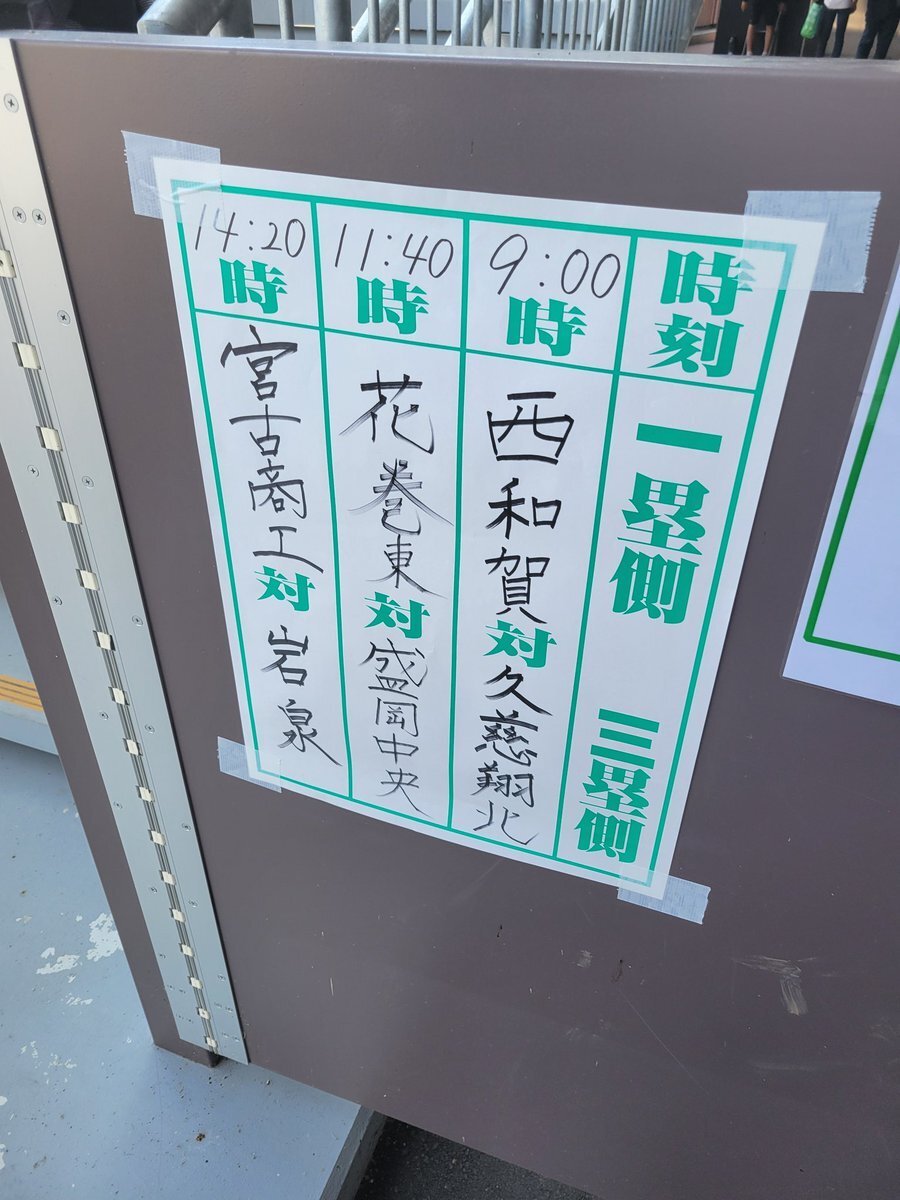 時刻
一塁側 三塁側
9:00時
西和賀対久慈翔北
11:40時
花巻東対盛岡中央
14:20時
宮古商工対岩泉